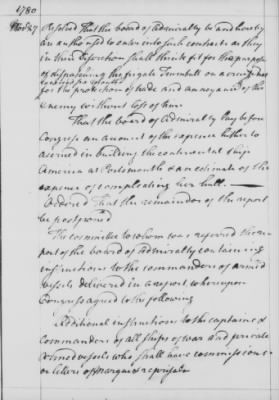 1780
Nov 27 Resolved That the board of admiralty be and hereby
are authorised to enter into such contracts as they
in their discretion shall think fit for the purpose
of dispatching the frigate Trumbull on a cruise
for the protection of trade and annoyance of the
enemy without loss of time
That the board of Admiralty lay before
Congress an account of the expence hither to
accrued in building the continental ship
America at Portsmouth & an estimate of the
expence of compleating her hull.
Ordered That the remainder of the report
be postponed
The committee to whom was referred the re
port of the board of admiralty containing
instructions to the commanders of armed
vessels delivered in a report whereupon
Congress agreed to the following
Additional instructions to the captains &
commanders of all ships of war and private
armed vessels who shall have commissions
or letters of marque & reprisals